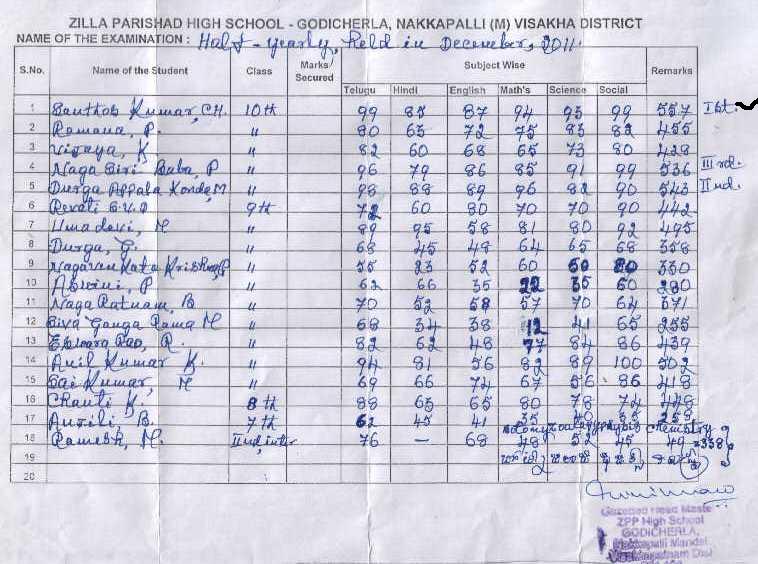 ZILLA PARISHAD HIGH SCHOOL - GODICHERLA, NAKKAPALLI (M) VISAKHA DISTRICT
NAME OF THE EXAMINATION : Half-yearly, Held in December, 2011.
S.No. Name of the Student Class Marks Secured Subject Wise Remarks
Telugu Hindi English Math's Science Social
1 Santhosh Kumar, CH. 10th 99 85 87 94 93 99 557 Ist.
2 Ramana, P. " 80 63 72 75 83 82 455
3 Vijaya, K " 82 60 68 65 73 80 428
4 Naga Siri Baba, P " 96 79 86 85 91 99 536 IIIrd.
5 Durga Appala Konda, M " 98 88 89 96 82 90 543 IInd.
6 Revati 9th 72 60 80 70 70 90 442
7 Umadevi, M " 89 95 58 81 80 92 495
8 Durga, G. " 68 45 48 64 65 68 358
9 " 55 23 52 60 330
10 Aswini, P " 62 66 35 22 35 60 280
11 Naga Ratnam, B " 70 52 58 57 70 64 371
12 Siva Ganga Rama M " 68 34 38 12 41 65 255
13 Eswara Rao, R. " 82 62 48 77 84 86 439
14 Anil Kumar K. " 94 81 56 82 89 100 502
15 Sai Kumar, M " 69 66 74 67 56 86 418
16 Chanti K. 8th 88 65 65 80 78 72 448
17 B. 7th 62 45 41 35 40 35 258
Zoology physics chemistry
18 Ramesh, M. IInd inter 76 - 68 48 52 45 49 =338
19
20
Gazetted Head Maste
ZPP High School
GODICHERLA,
Nakkapalli Mandal